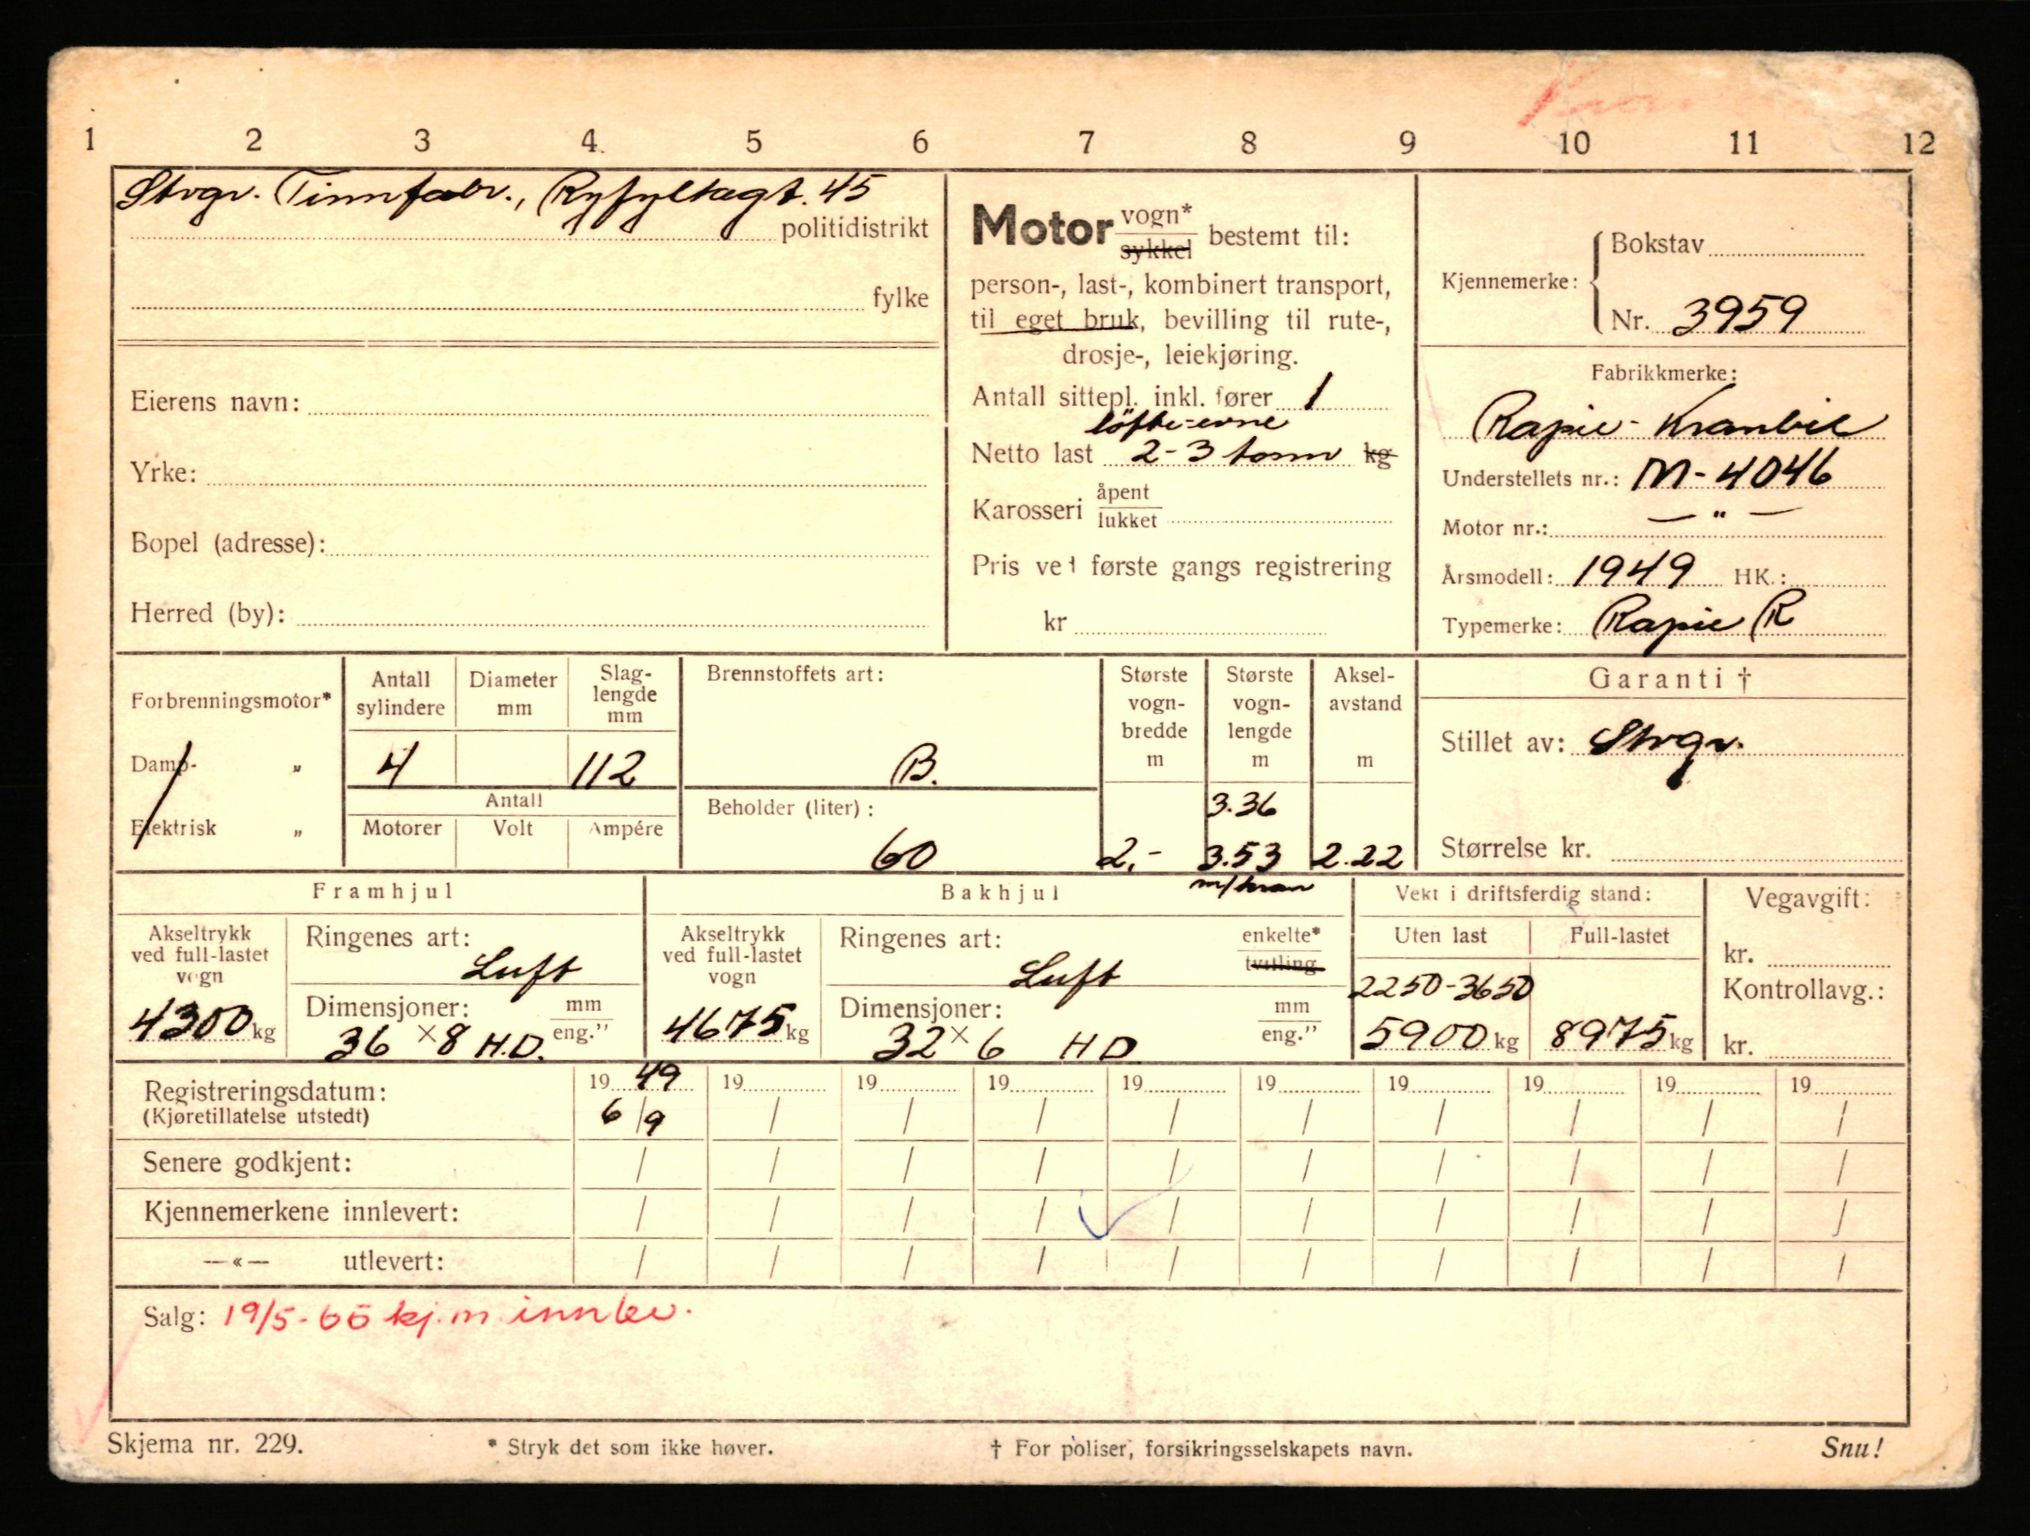 1 2 3 4 5 6 7 8 9 10 11 12
Stvgr. Tinnfabr., Ryfylkegt. 45
politidistrikt
fylke
Eierens navn:
Yrke:
Bopel (adresse):
Herred (by):
Motor vogn* sykkel bestemt til:
person-, last-, kombinert transport,
til eget bruk, bevilling til rute-,
drosje-, leiekjøring.
Antall sittepl. inkl. fører 1
löfte-evne
Netto last 2-3 tonn kg
Karosseri åpent lukket
Pris ved første gangs registrering
kr
Kjennemerke: Bokstav
Nr. 3959
Fabrikkmerke:
Rapie-Kranbil
Understellets nr.: M-4046
Motor nr.: — " —
Årsmodell: 1949 HK.:
Typemerke: Rapie R
Forbrenningsmotor*
Damp- „
Elektrisk „
Antall sylindere
Diameter mm
Slag-lengde mm
4 112
Antall
Motorer Volt Ampére
Brennstoffets art:
B.
Beholder (liter):
60
Største vogn-bredde m
2,-
Største vogn-lengde m
3.36
3.53
m/kran
Aksel-avstand m
2.22
Garanti †
Stillet av: Stvgr.
Størrelse kr.
Framhjul
Akseltrykk ved full-lastet vogn
4300 kg
Ringenes art:
Luft
Dimensjoner: mm eng."
36 × 8 H.D.
Bakhjul
Akseltrykk ved full-lastet vogn
4675 kg
Ringenes art: enkelte* tvilling
Luft
Dimensjoner: mm eng."
32 × 6 HD
Vekt i driftsferdig stand:
Uten last Full-lastet
2250-3650
5900 kg 8975 kg
Vegavgift:
kr.
Kontrollavg.:
kr.
Registreringsdatum: 19 49 19 19 19 19 19 19 19 19 19
(Kjøretillatelse utstedt) 6/9 / / / / / / / / /
Senere godkjent: / / / / / / / / / /
Kjennemerkene innlevert: / / / / / / / / / /
—«— utlevert: / / / / / / / / / /
Salg: 19/5-65 kj.m innlev.
Skjema nr. 229. * Stryk det som ikke høver. † For poliser, forsikringsselskapets navn. Snu!